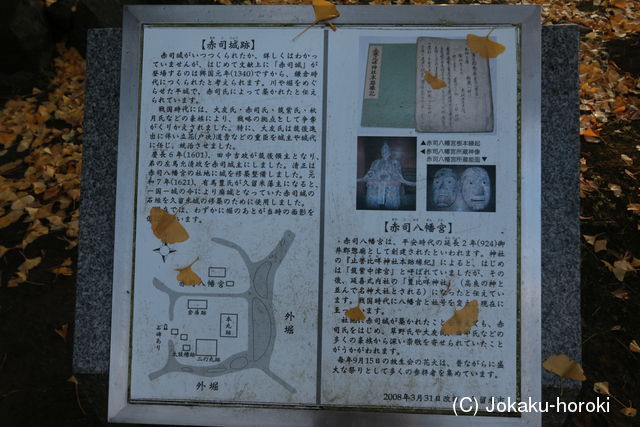 【赤司城跡】
赤司城がいつつくられたか、詳しくはわかっ
ていませんが、はじめて文献上に「赤司城」が
登場するのは興国元年(1340)ですから、鎌倉時
代につくられたと考えられます。川や堀をめぐ
らせた平城で、赤司氏によって築かれたと伝え
られています。
戦国時代には、大友氏・赤司氏・筑紫氏・秋
月氏などの豪族により、戦略の拠点として争奪
がくりかえされました。特に、大友氏は筑後進
出に伴い立花(戸次)道雪などの重臣を城主や城代
に任じ、統治させました。
慶長6年(1601)、田中吉政が筑後領主となり、
弟の左馬允清政を赤司城主にしました。清政は
赤司八幡宮の社地に城を修築整備しました。元
和7年(1621)、有馬豊氏が久留米藩主になると、
一国一城の令により廃城となっていた赤司城の
石垣を久留米城の修築のために使用しました。
では、わずかに堀のあとが当時の面影を
います。
赤司八幡宮
倉庫跡
本丸跡
二ノ丸跡
外堀
外堀
▲赤司八幡宮根本縁起
◀赤司八幡宮所蔵神像
赤司八幡宮所蔵能面▼
【赤司八幡宮】
赤司八幡宮は、平安時代の延長2年(924)御
井郡惣廟として創建されたといわれます。神社
の『止誉比咩神社本跡縁起』によると、はじめ
は「筑紫中津宮」と呼ばれていましたが、その
後、延喜式内社の「豊比咩神社」(高良の神と
並んで名神大社とされる)になったと伝えてい
ます。戦国時代に八幡宮と社号を変え、現在に
至っています。
社地に赤司城が築かれたこと
氏をはじめ、草野氏や大友氏
多くの豪族から深い崇敬を寄せられていたこと
がうかがわれます。
毎年9月15日の放生会の花火は、昔ながらに盛
大な祭りとして多くの参拝者を集めています。
2008年3月31日
(C) Jokaku-horoki